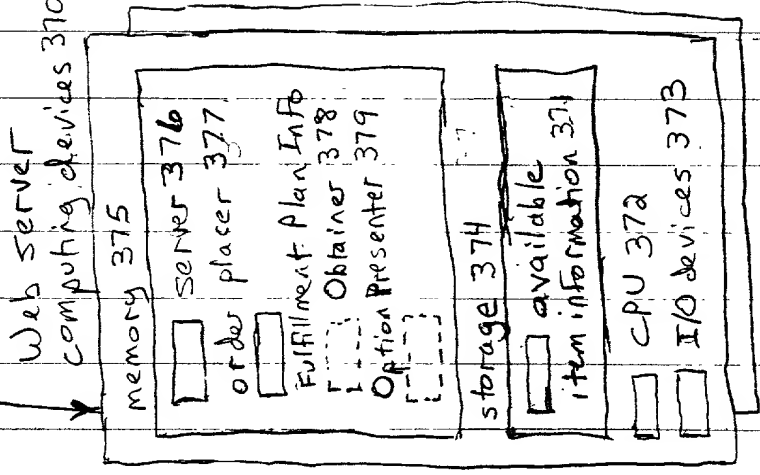 Web server
computing devices 370
memory 375
server 376
order placer 377
Fulfillment Plan Info
Obtainer 378
Option Presenter 379
storage 374
available
item information 371
CPU 372
I/O devices 373